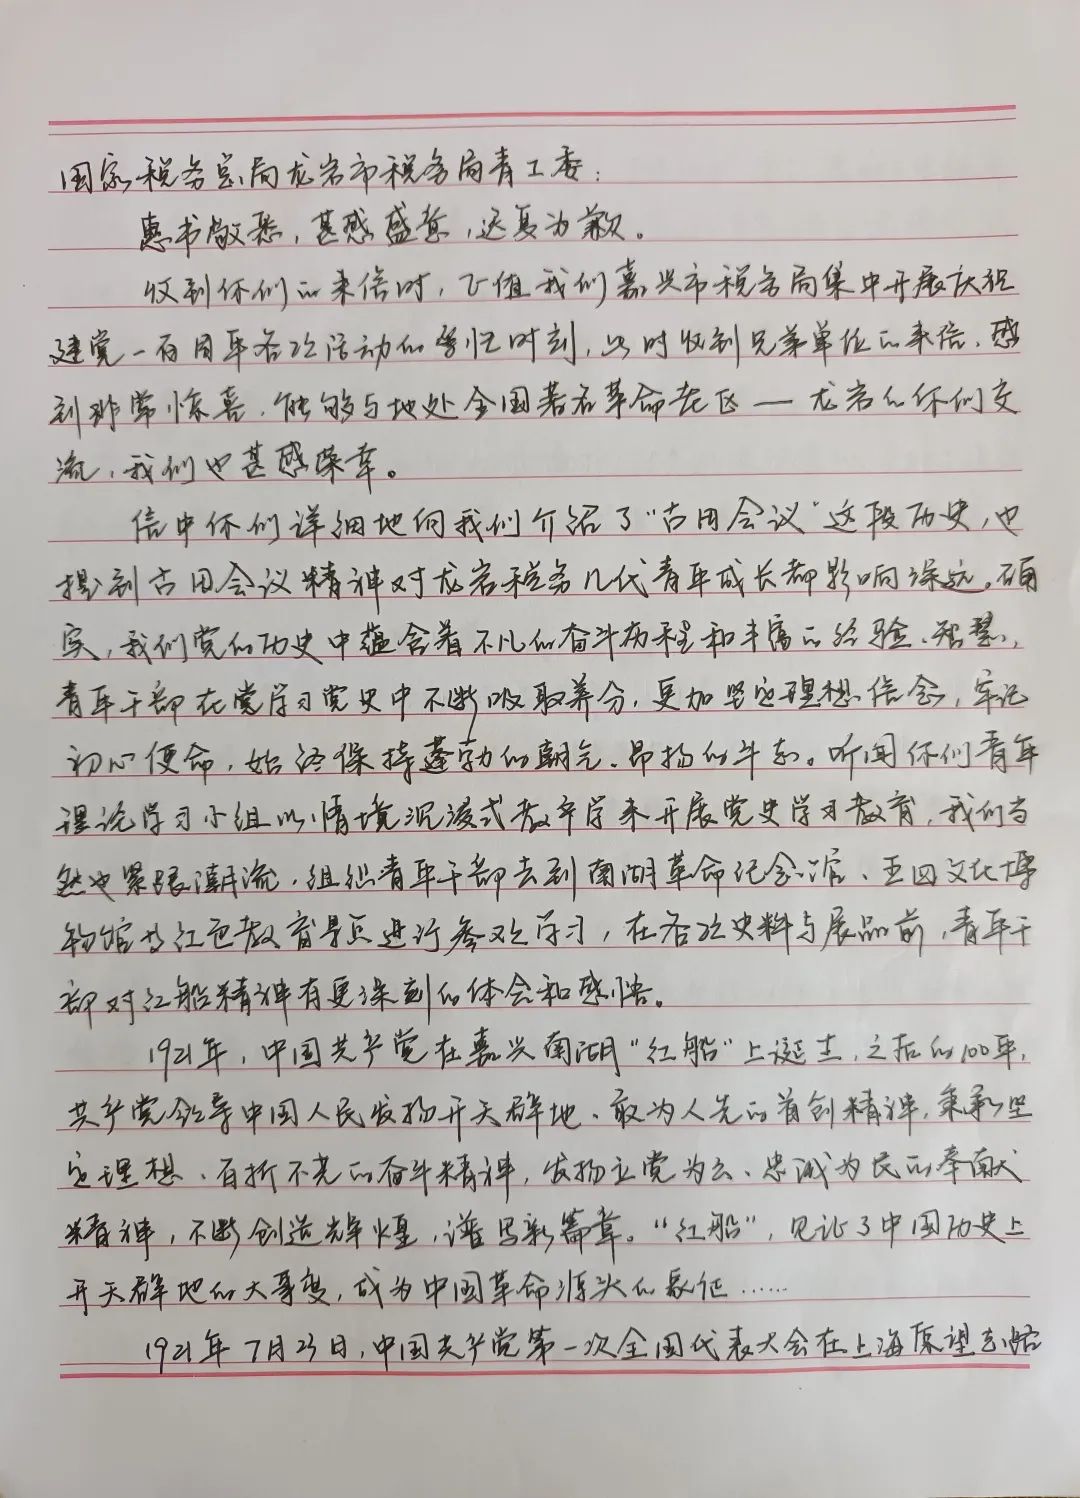 国家税务总局龙岩市税务局青工委：
惠书敬悉，甚感盛意，迟复为歉。
收到你们的来信时，正值我们嘉兴市税务局集中开展庆祝
建党一百周年各次活动的繁忙时刻，此时收到兄弟单位的来信，感
到非常惊喜，能够与地处全国著名革命老区——龙岩的你们交
流，我们也甚感荣幸。
信中你们详细地向我们介绍了“古田会议”这段历史，也
提到古田会议精神对龙岩税务几代青年成长都影响深远。确
实，我们党的历史中蕴含着不凡的奋斗历程和丰富的经验、智慧，
青年干部在党学习党史中不断吸取养分，更加坚定理想信念，牢记
初心使命，始终保持蓬勃的朝气、昂扬的斗志。听闻你们青年
理论学习小组以情境沉浸式教学来开展党史学习教育，我们当
然也紧跟潮流，组织青年干部去到南湖革命纪念馆、五四文化博
物馆等红色教育景点进行参观学习，在各次史料与展品前，青年干
部对红船精神有更深刻的体会和感悟。
1921年，中国共产党在嘉兴南湖“红船”上诞生，之后的100年，
共产党领导中国人民发扬开天辟地、敢为人先的首创精神，秉承坚
定理想、百折不挠的奋斗精神，发扬立党为公、忠诚为民的奉献
精神，不断创造辉煌，谱写新篇章。“红船”，见证了中国历史上
开天辟地的大事变，成为中国革命源头的象征……
1921年7月23日，中国共产党第一次全国代表大会在上海原望志路